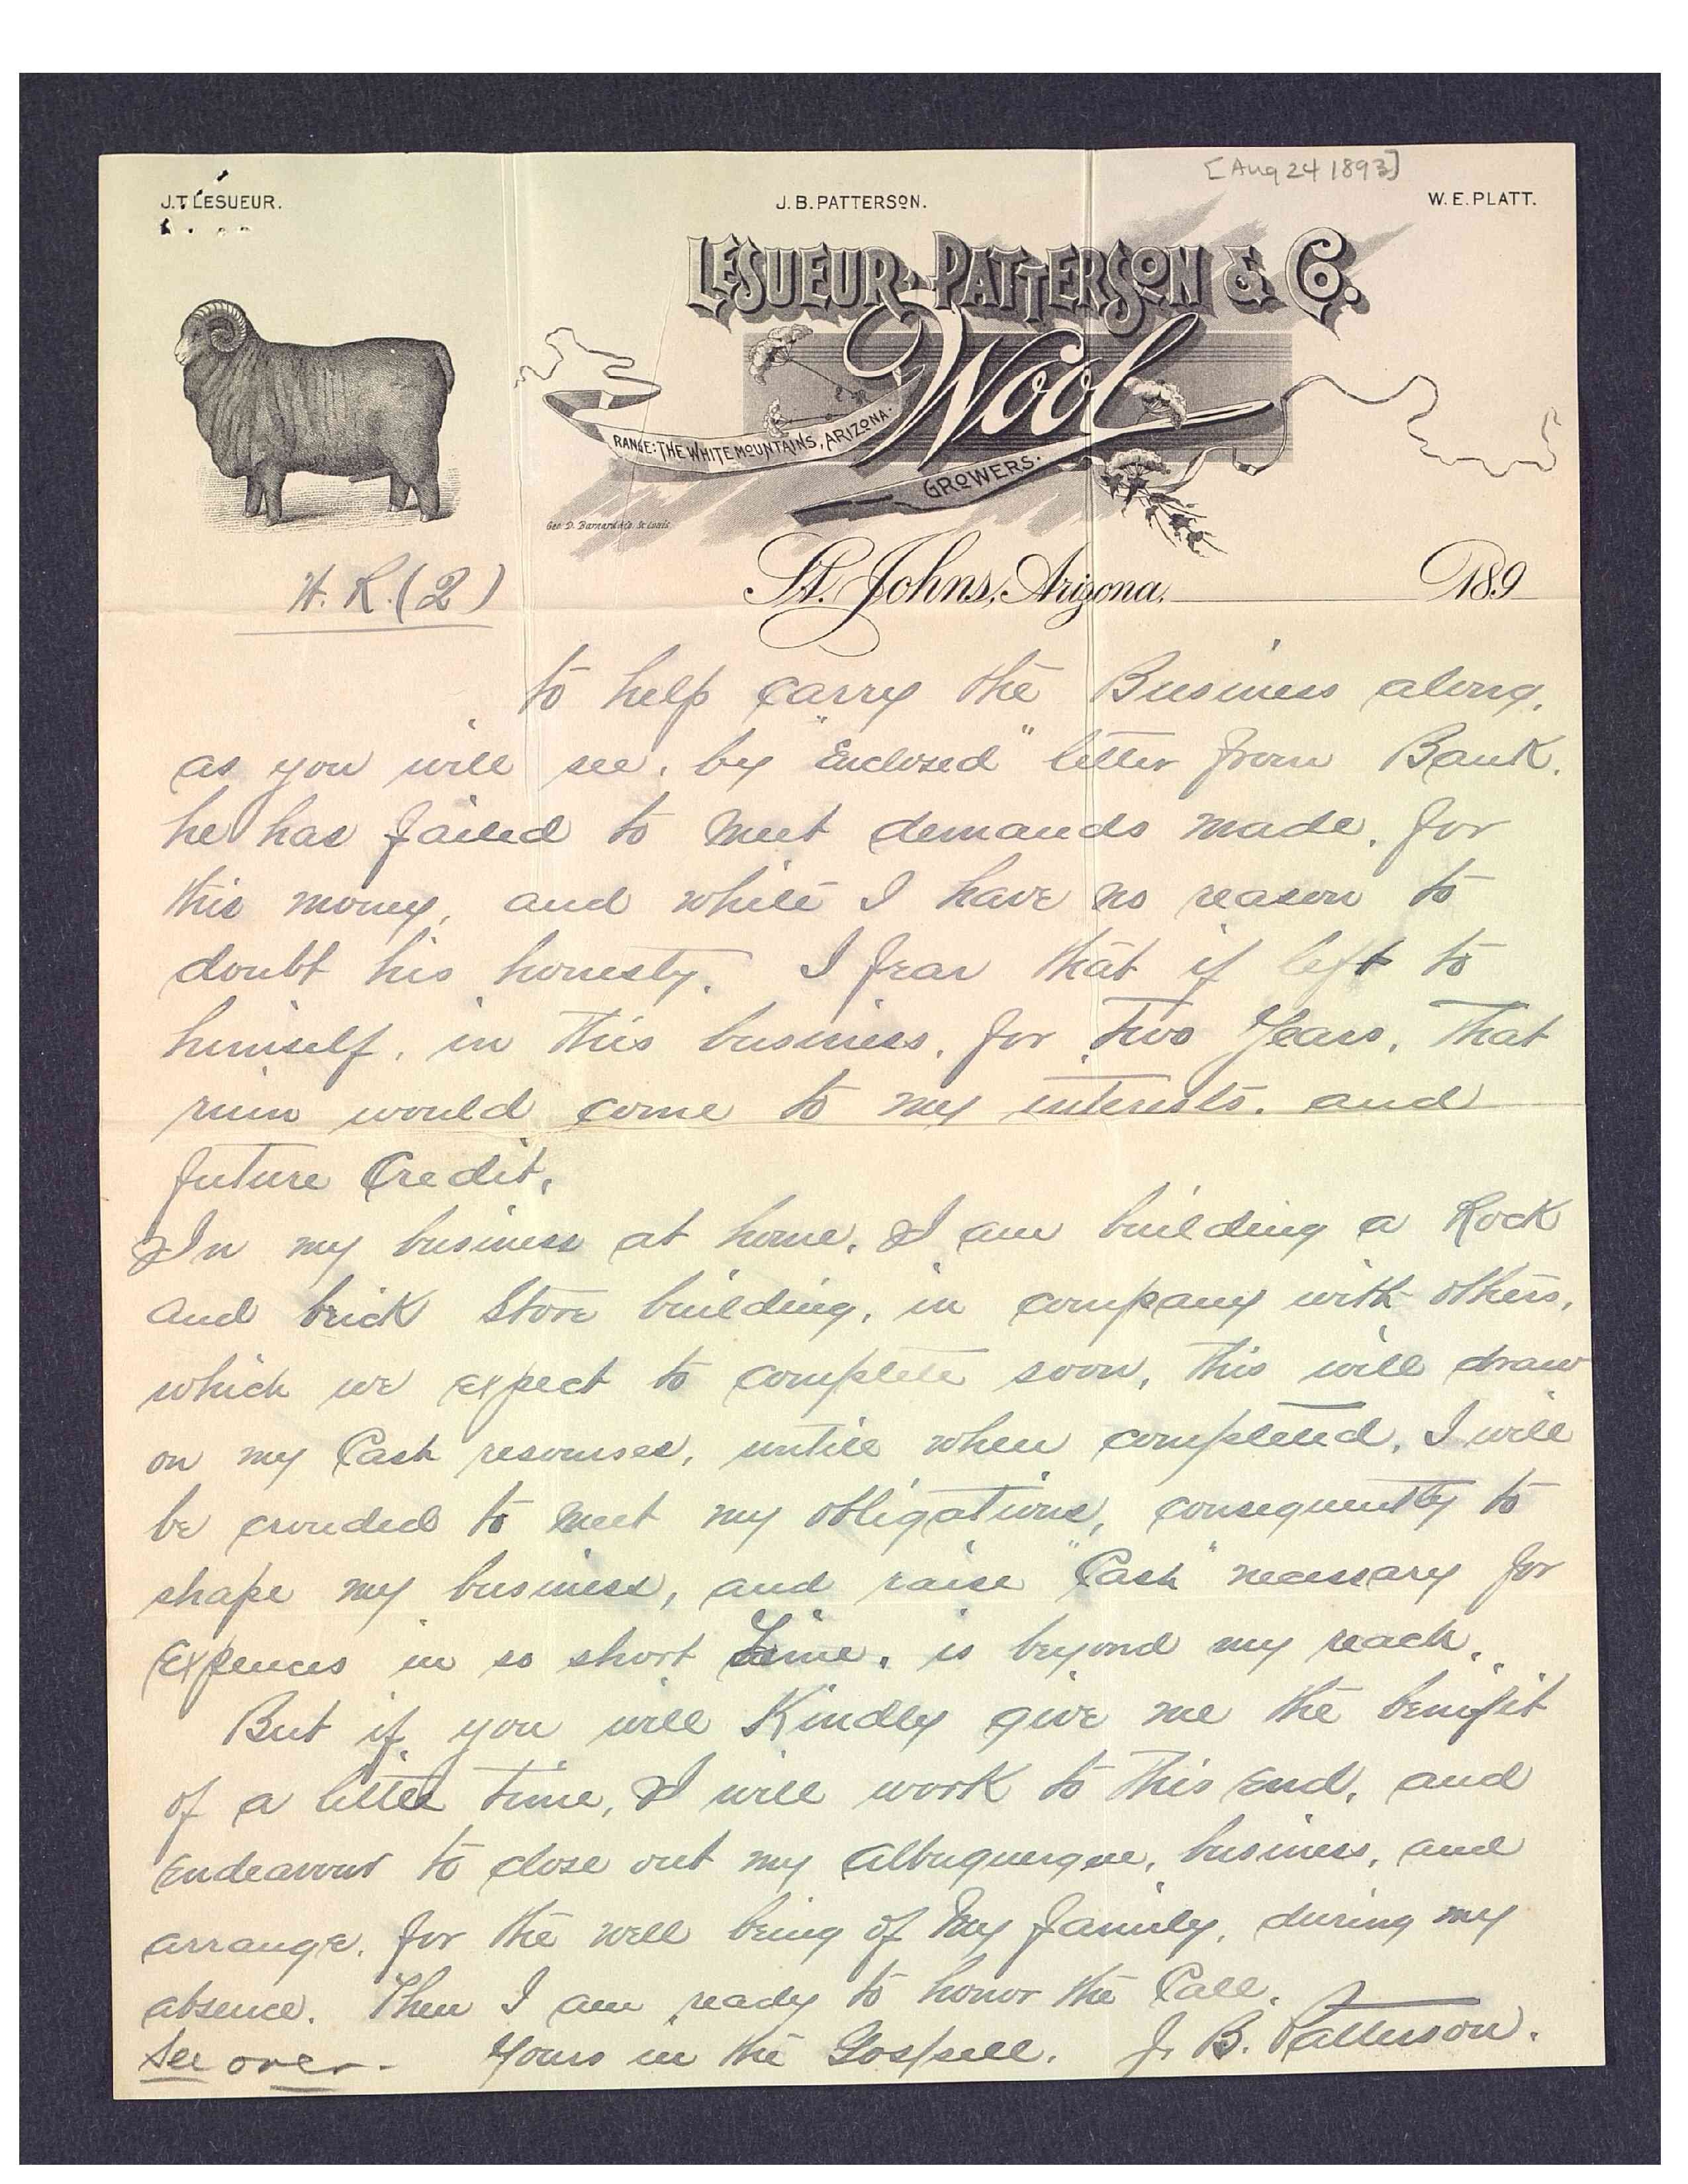 [Aug 24 1893]
J.T. LESUEUR.
J. B. PATTERSON.
W. E. PLATT.
LESUEUR, PATTERSON & Co.
Wool
RANGE: THE WHITE MOUNTAINS, ARIZONA.
GROWERS.
Geo. D. Barnard & Co. St. Louis
St. Johns, Arizona, 189
H. R. (2)
to help carry the Business along,
as you will see, by "Enclosed" letter from Bank.
he has failed to meet demands made, for
this money, and while I have no reason to
doubt his honesty. I fear that if left to
himself, in this business, for Two Years, that
ruin would come to my interests, and
future Credit,
In my business at home, I am building a Rock
and brick Store building, in company with others,
which we expect to complete soon, this will draw
on my Cash resourses, untill when completed, I will
be crouded to meet my obligations, consequently to
shape my business, and raise "Cash" necessary for
Expences in so short time, is beyond my reach.
But if you will Kindly give me the benifit
of a little time, I will work to this End, and
Endeavour to close out my Albuquerque, business, and
arrange, for the well being of my family, during my
absence. Then I am ready to honor the Call.
Yours in the Gospell. J. B. Patterson.
See over.